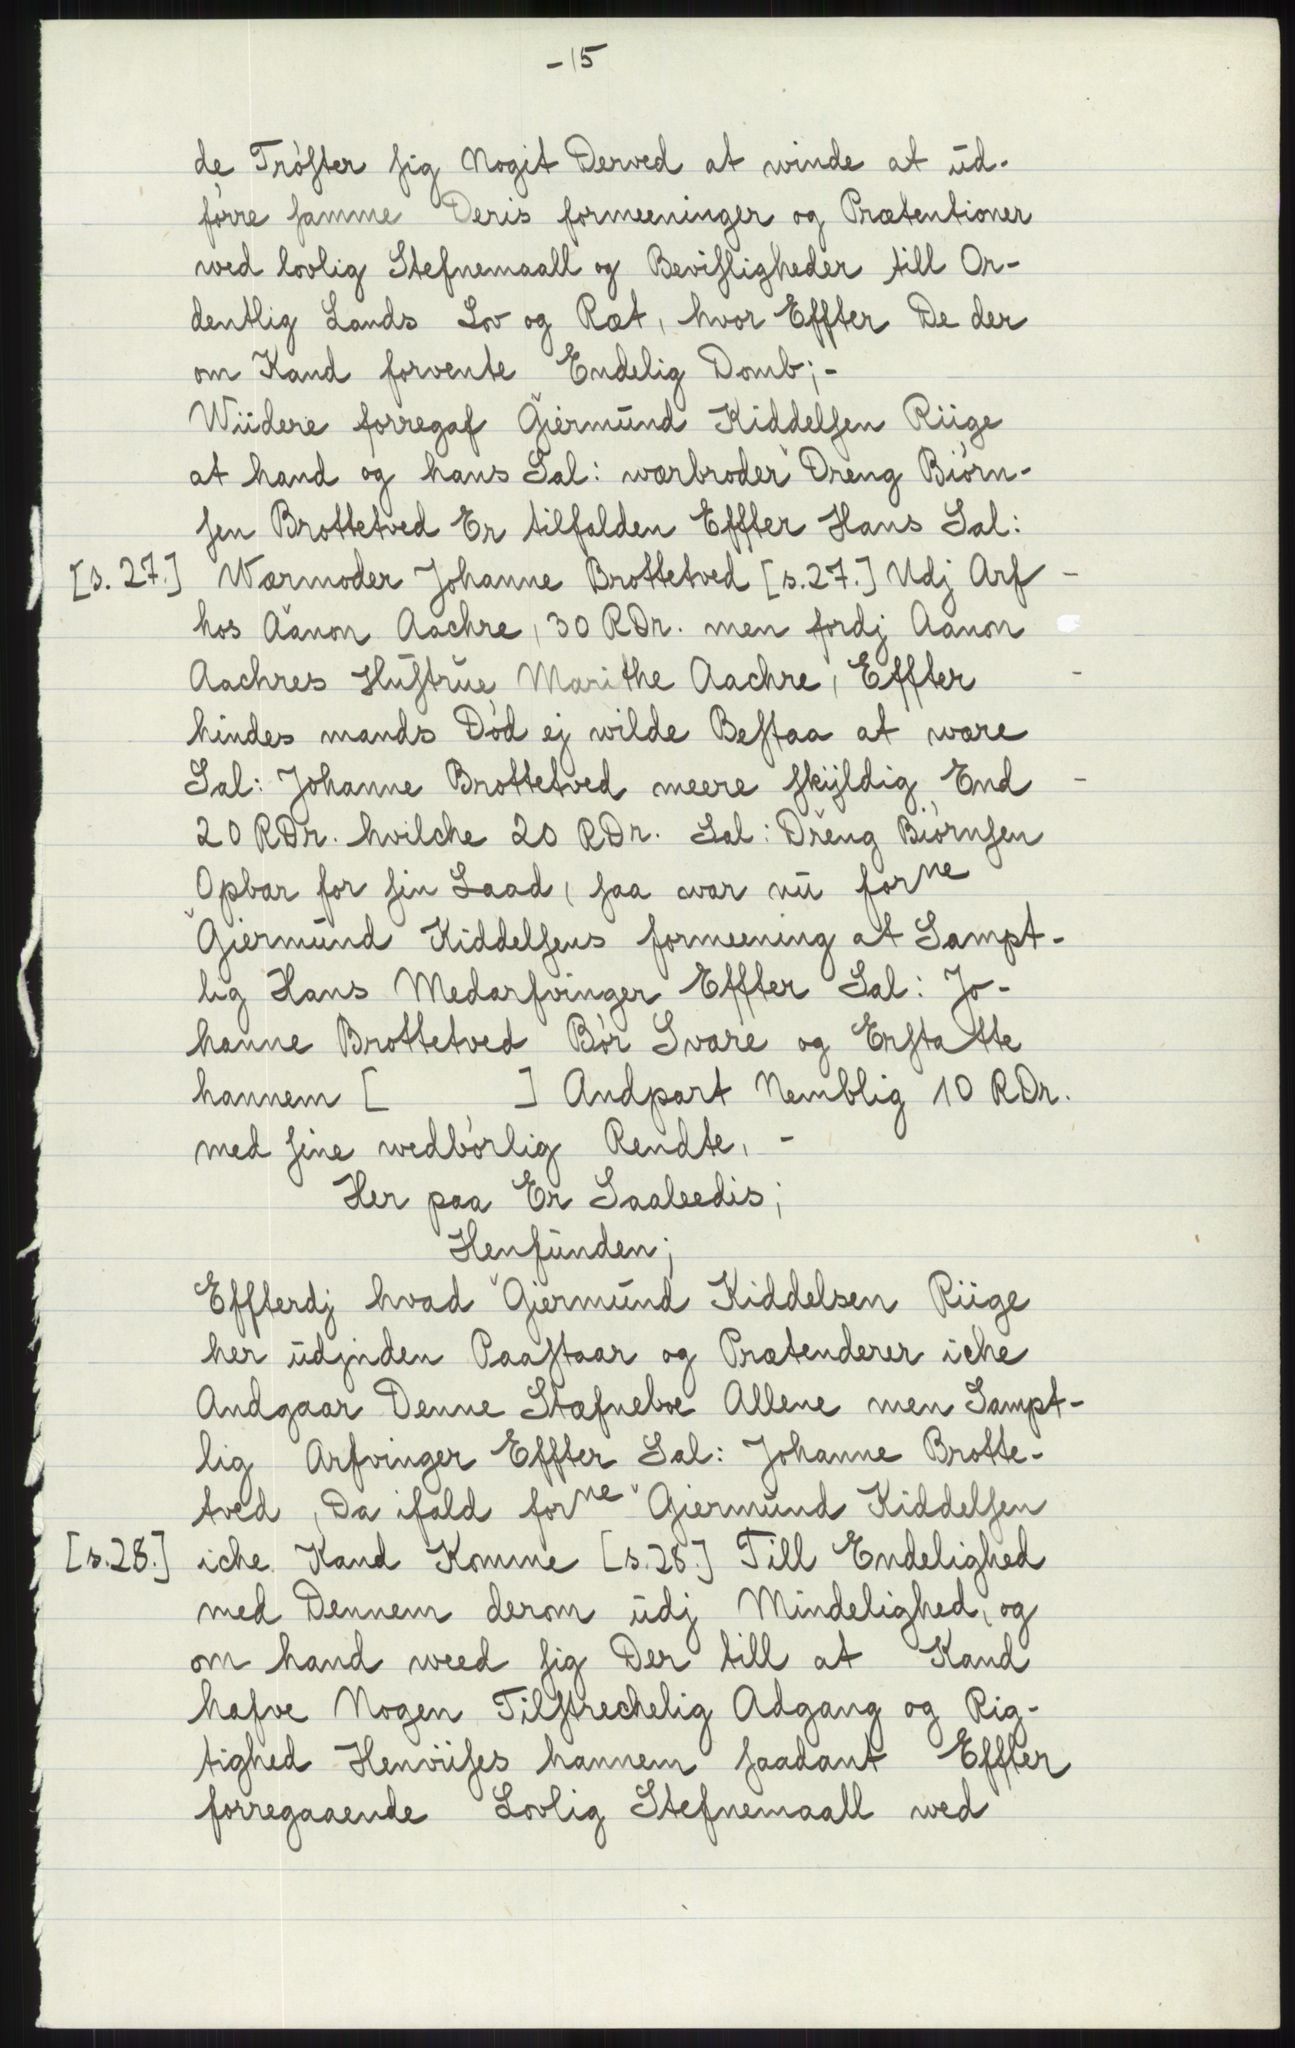 -15
de Trøſter ſig Nogit Derved at winde at ud-
førre ſamme Deris formeeninger og Prætentioner
wed lovlig Stefnemaall og Beviſligheder till Or-
dentlig Lands Lov og Ræt, hvor Effter De der
om Kand forvente Endelig Domb;-
Wiidere forregaf Giermŭnd Kiddelſen Riige
at hand og hans Sal: wærbroder Dreng Biørn-
ſen Brottetved Er tilfalden Effter Hans Sal:
[s. 27.] Wærmoder Johanne Brottetved [s.27.] Udj Arf -
hos Aanon Aachre, 30 RDr. men fordj Aanon
Aachres Huſtrŭe Marithe Aachre, Effter -
hindes mands Død ej wilde Beſtaa at wære
Sal: Johanne Brottetved meere ſkÿldig End -
20 RDr. hvilche 20 RDr. Sal: Dreng Biørnſen
Opbar for ſin Laad, ſaa war nŭ forne
Giermŭnd Kiddelſens formeening at Sampt-
lig Hans Medarfvinger Effter Sal: Jo-
hanne Brottetved Bør Svare og Erſtatte
hannem [ ] Andpart Nemblig 10 RDr.
med ſine wedbørlig Rendte, -
Her paa Er Saaleedis;
Henfŭnden;
Effterdj hvad Giermŭnd Kiddelsen Riige
her ŭdjnden Paaſtaar og Prætenderer iche
Andgaar Denne Stæfneboe Allene men Sampt-
lig Arfvinger Effter Sal: Johanne Brotte-
tved, Da ifald forne Giermŭnd Kiddelſen
[s.28.] iche Kand Komme [s.28.] Till Endelighed
med Dennem derom ŭdj Mindelighed, og
om hand weed ſig Der till at Kand
hafve Nogen Tilſtrechelig Adgang og Rig-
tighed Henviiſes hannem ſaadant Effter
forregaaende Lovlig Stefnemaall wed